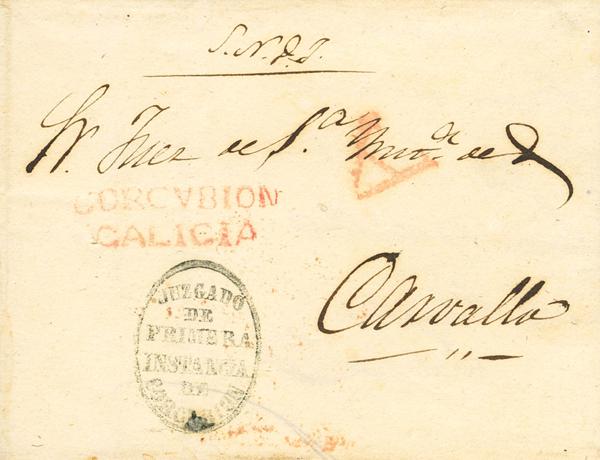 S. N. D. J.
Sr. Juez de 1.a Ynst.a de
A
CORCVBION
GALICIA
Carvallo
JUZGADO
DE
PRIMERA
INSTANCIA
DE
CORCUBION